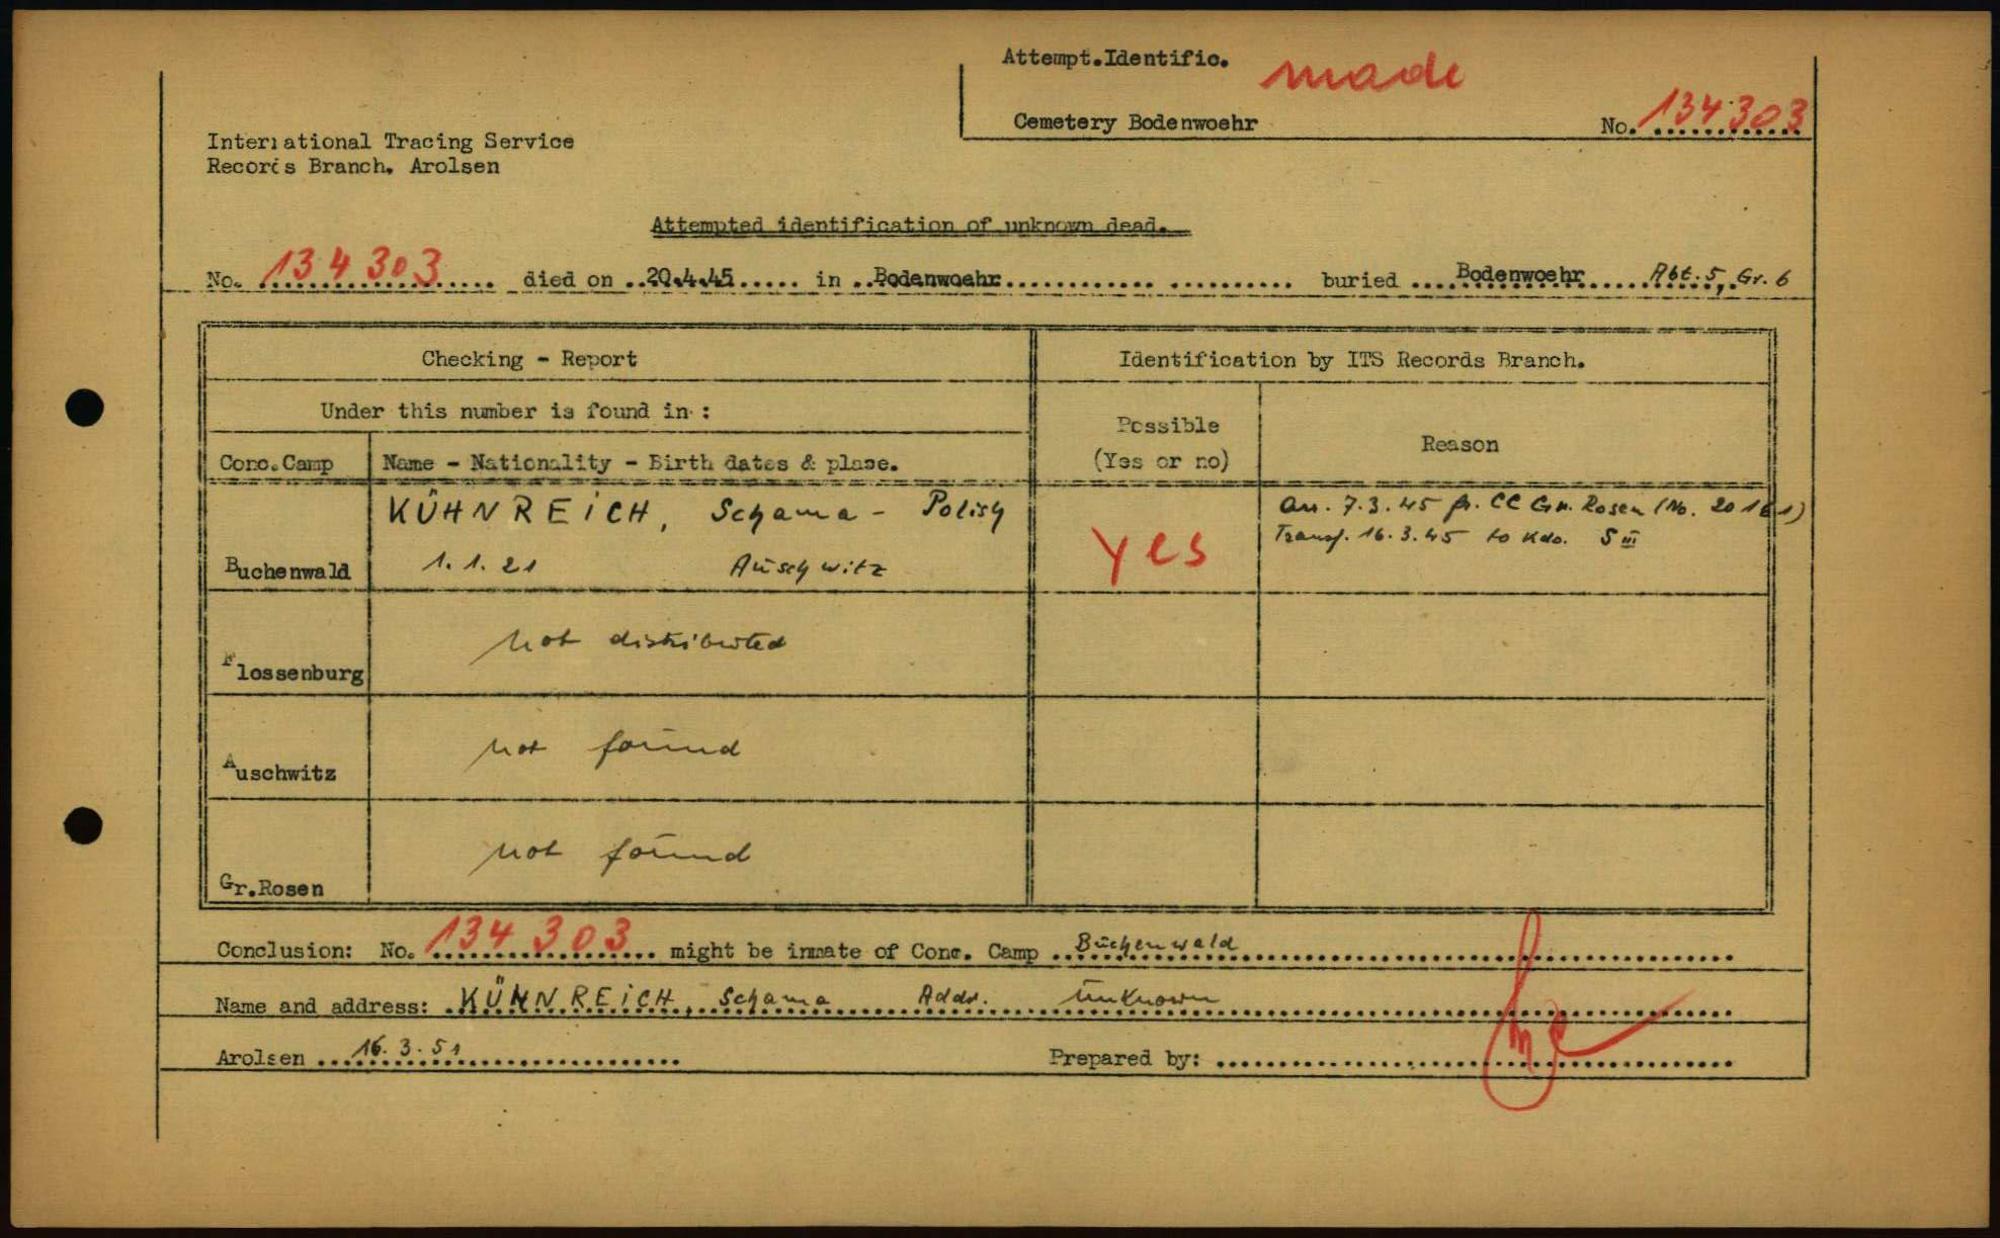 Attempt.Identific. made
Cemetery Bodenwoehr No. 134303
International Tracing Service
Records Branch. Arolsen
Attempted identification of unknown dead.
No. 134303 died on 20.4.45 in Bodenwoehr buried Bodenwoehr Abt. 5, Gr. 6
Checking - Report
Identification by ITS Records Branch.
Under this number is found in :
Possible
(Yes or no)
Reason
Conc.Camp
Name - Nationality - Birth dates & place.
Buchenwald
KÜHNREICH, Schama - Polish
1.1.21 Auschwitz
yes
Arr. 7.3.45 fr. CC Gr. Rosen (No. 20161)
Transf. 16.3.45 to Kdo. S III
Flossenburg
not distributed
Auschwitz
not found
Gr.Rosen
not found
Conclusion: No. 134303 might be inmate of Conc. Camp Buchenwald
Name and address: KÜHNREICH, Schama Addr. unknown
Arolsen 16.3.51 Prepared by: